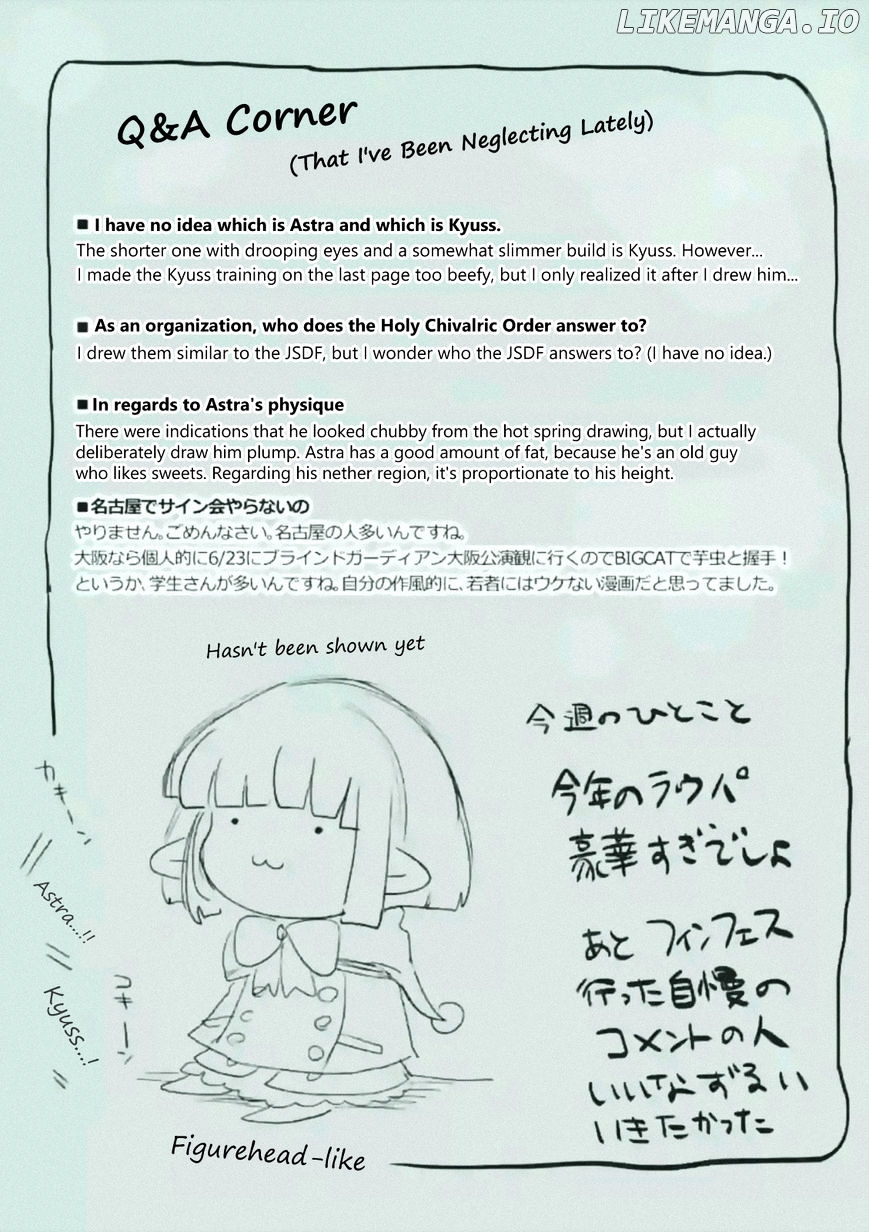 LIKEMANGA.IO
Q&A Corner
(That I've Been Neglecting Lately)
■ I have no idea which is Astra and which is Kyuss.
The shorter one with drooping eyes and a somewhat slimmer build is Kyuss. However...
I made the Kyuss training on the last page too beefy, but I only realized it after I drew him...
■ As an organization, who does the Holy Chivalric Order answer to?
I drew them similar to the JSDF, but I wonder who the JSDF answers to? (I have no idea.)
■ In regards to Astra's physique
There were indications that he looked chubby from the hot spring drawing, but I actually
deliberately draw him plump. Astra has a good amount of fat, because he's an old guy
who likes sweets. Regarding his nether region, it's proportionate to his height.
■名古屋でサイン会やらないの
やりません。ごめんなさい。名古屋の人多いんですね。
大阪なら個人的に6/23にブラインドガーディアン大阪公演観に行くのでBIGCATで芋虫と握手！
というか、学生さんが多いんですね。自分の作風的に、若者にはウケない漫画だと思ってました。
Hasn't been shown yet
今週のひとこと
今年のラウパ
豪華すぎでしょ
あと フィンフェス
行った自慢の
コメントの人
いいなずるい
いきたかった
カキーン
Astra...!!
コキーン
Kyuss...!
Figurehead-like